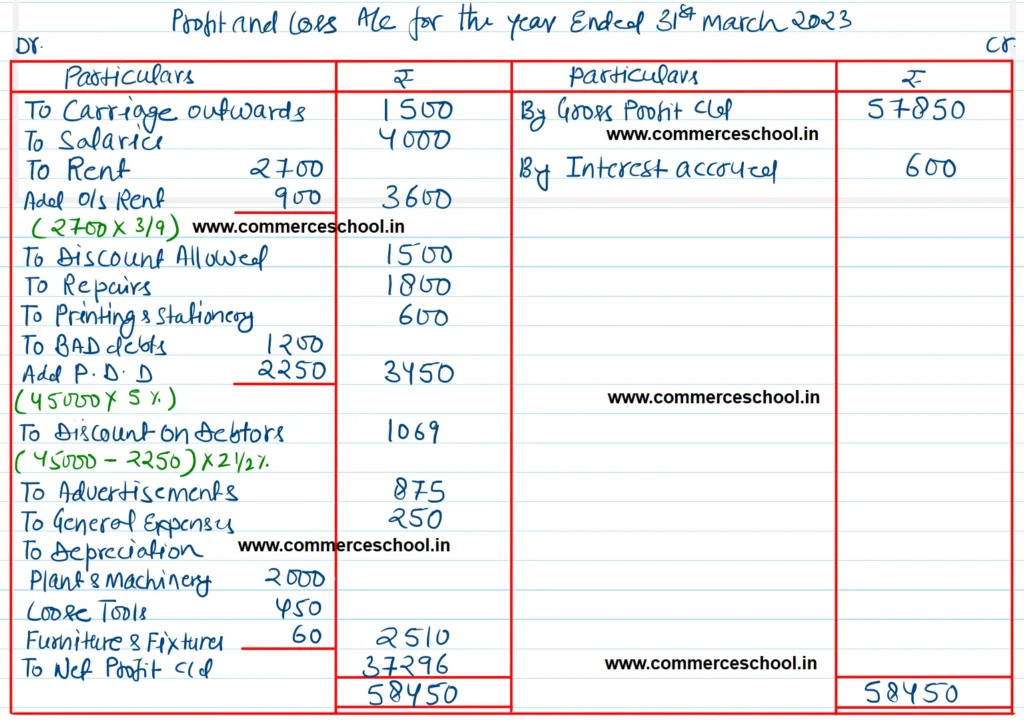 Profit and Loss A/c for the year Ended 31st March 2023
Dr. Cr.
Particulars ₹ Particulars ₹
To Carriage outwards 1500 By Gross Profit c/d 57850
www.commerceschool.in
To Salaries 4000
To Rent 2700 By Interest accrued 600
Add O/s Rent 900 3600
(2700 X 3/9) www.commerceschool.in
To Discount Allowed 1500
To Repairs 1800
To Printing & Stationery 600
To BAD debts 1200
Add P.D.D 2250 3450
(45000 X 5%) www.commerceschool.in
To Discount on Debtors 1069
(45000 - 2250) X 2 1/2%
To Advertisements 875
To General Expenses 250
To Depreciation www.commerceschool.in
Plant & Machinery 2000
Loose Tools 450
Furniture & Fixtures 60 2510
To Net Profit c/d 37296 www.commerceschool.in
58450 58450